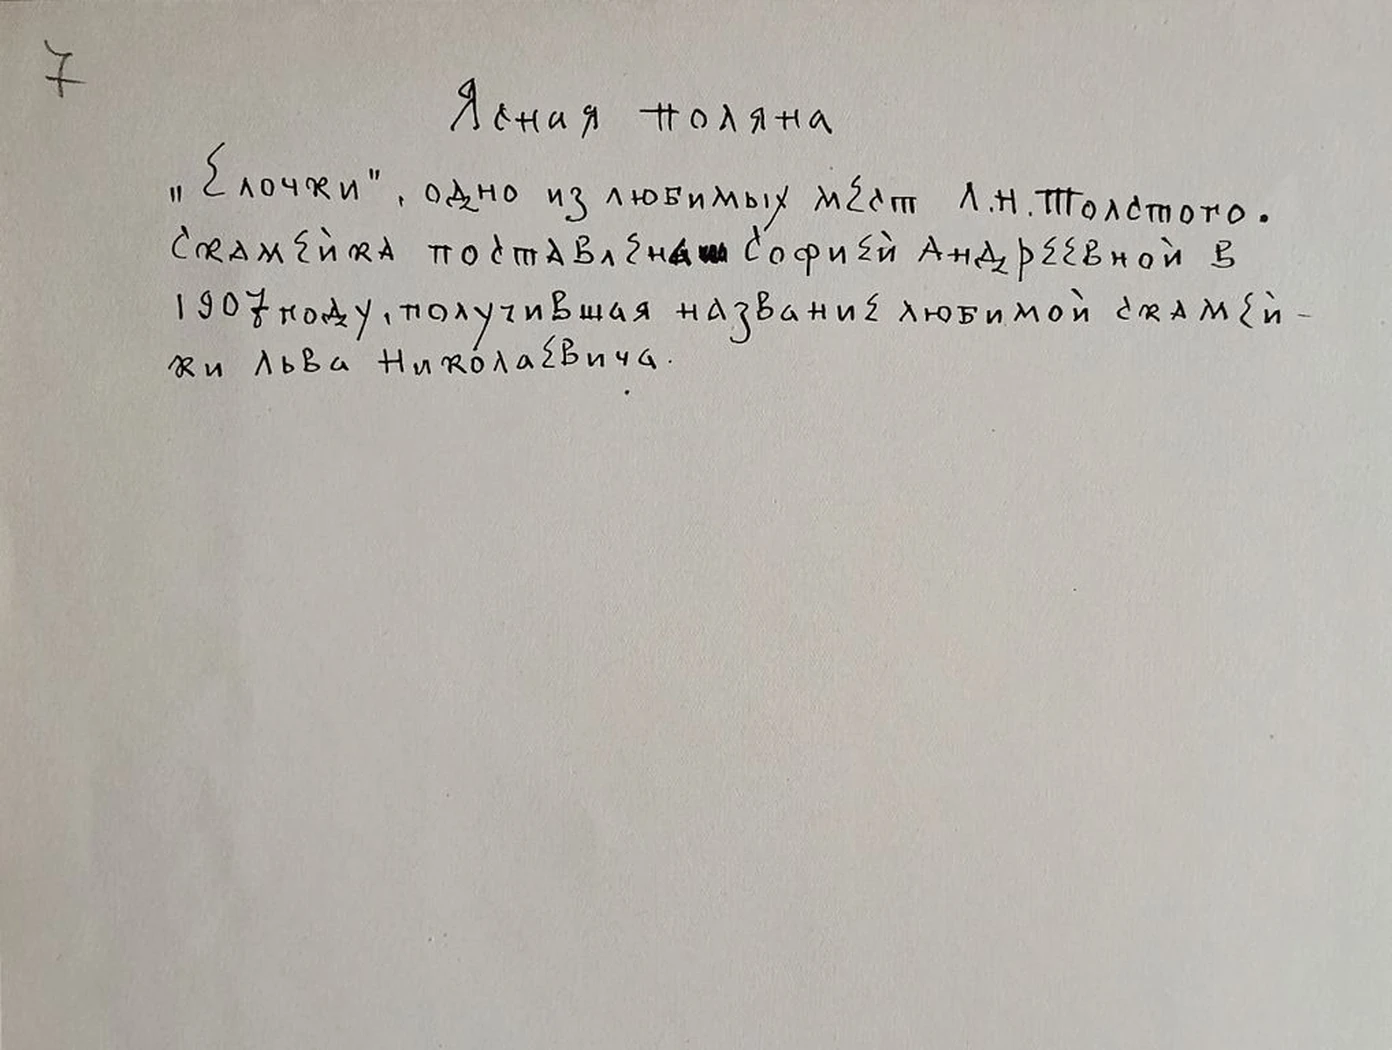 7
Ясная поляна
„Елочки", одно из любимых мест Л.Н.Толстого.
Скамейка поставлена Софией Андреевной в
1907 году, получившая название любимой скамей-
ки Льва Николаевича.